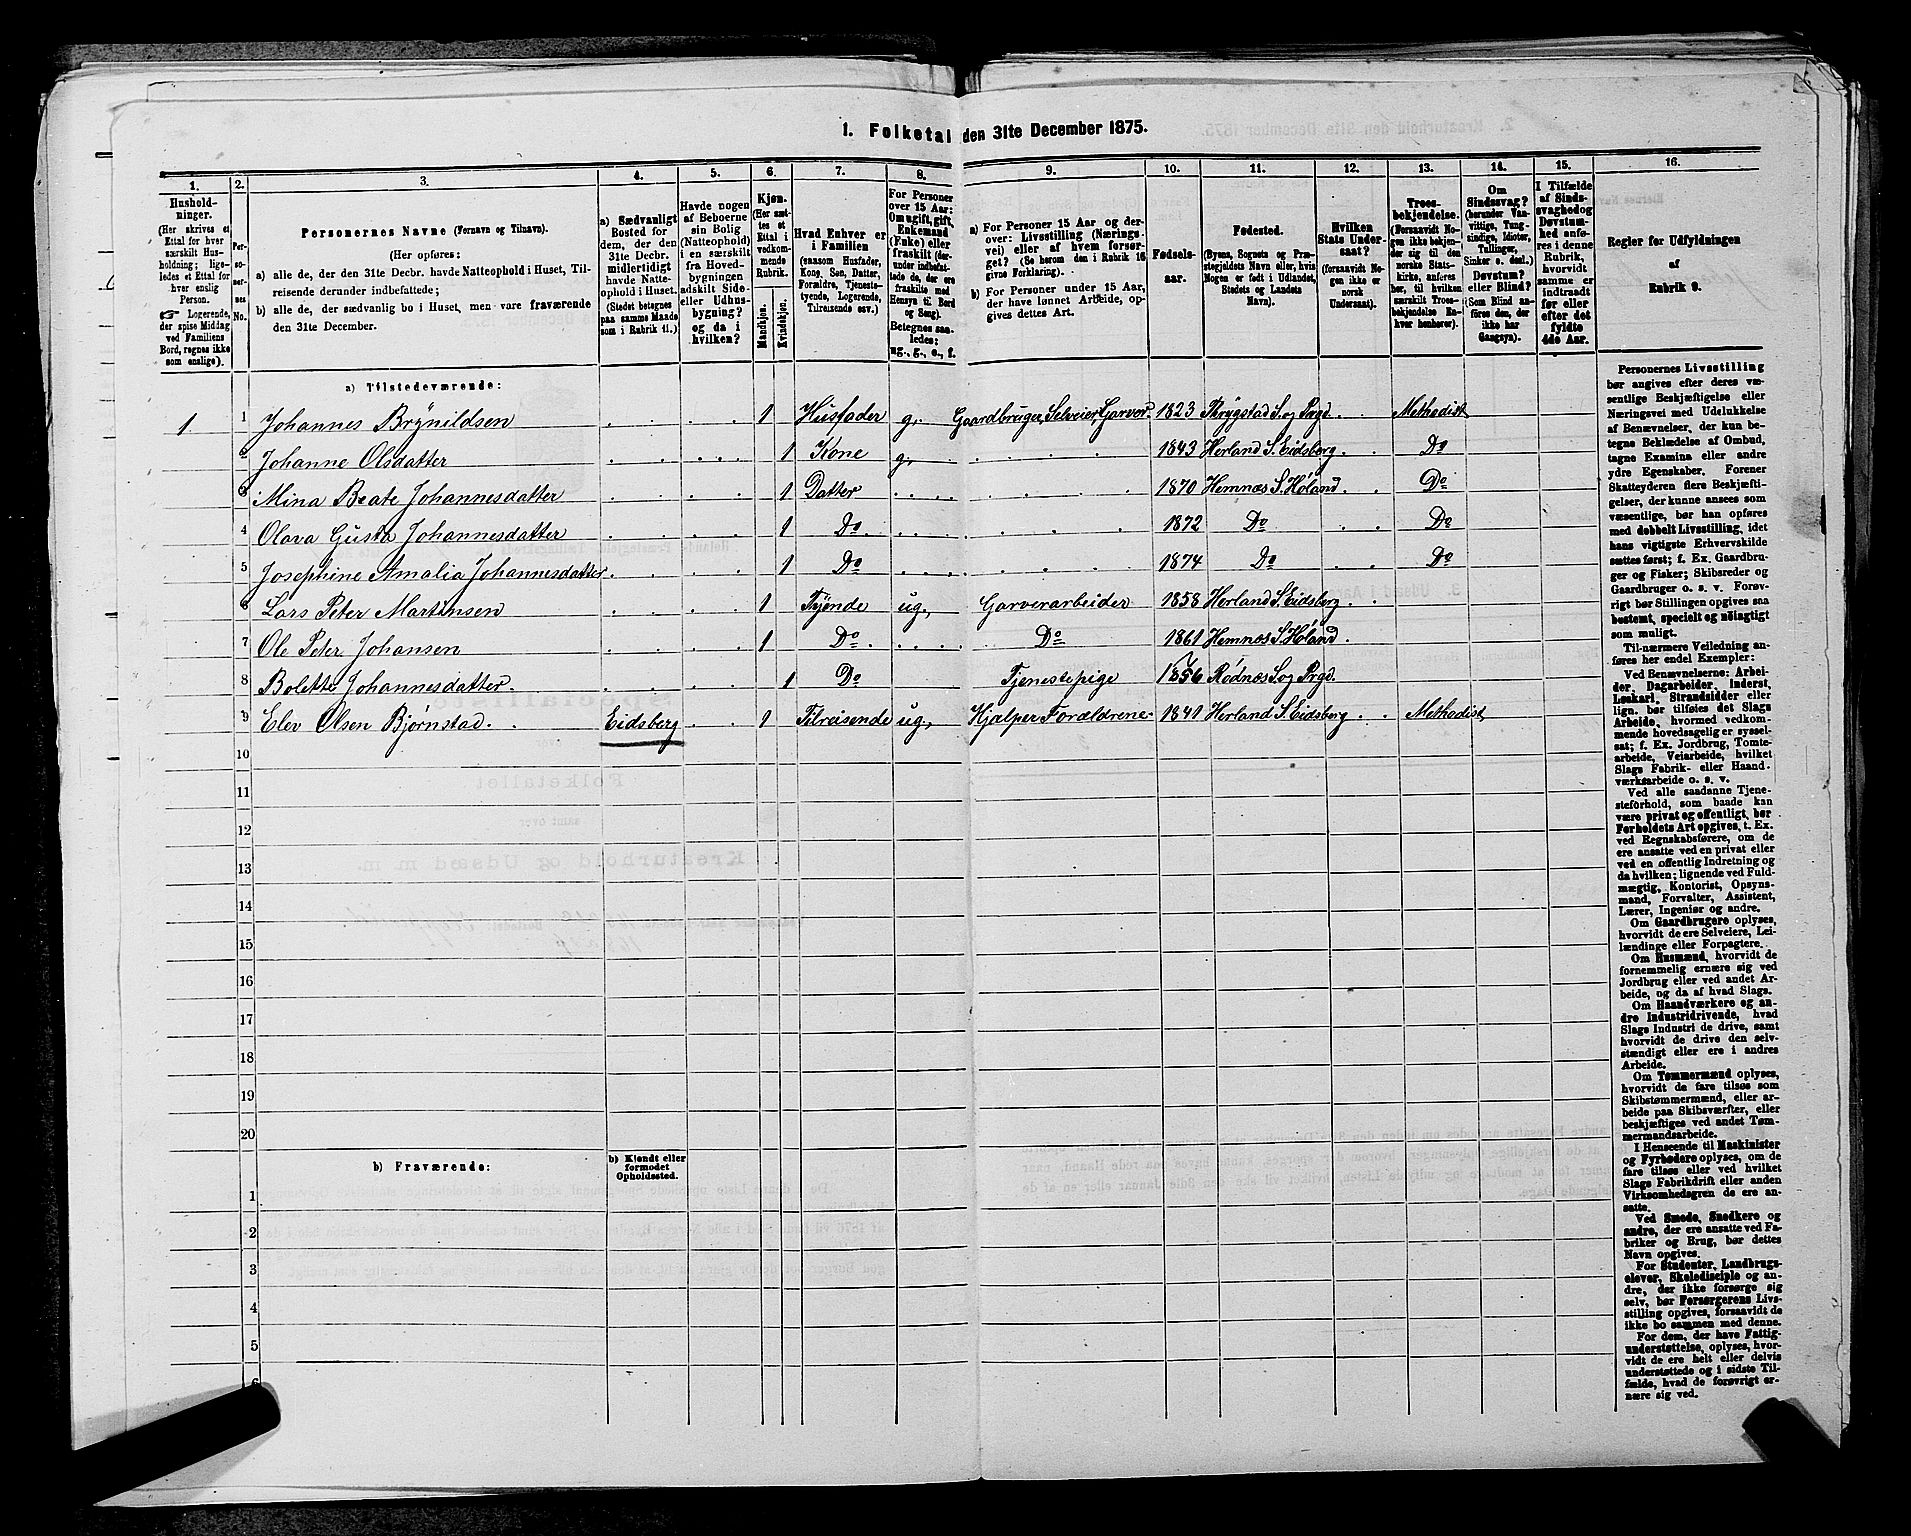 1. Folketal den 31te December 1875.
1. 2. 3. 4. 5. 6. 7. 8. 9. 10. 11. 12. 13. 14. 15. 16.
Hushold-
ninger.
(Her skrives et
Ettal for hver
særskilt Hus-
holdning; lige-
ledes et Ettal for
hver enslig
Person.
☞ Logerende,
der spise Middag
ved Familiens
Bord, regnes ikke
som enslige).
Per-
so-
ner-
nes
No.
Personernes Navne (Fornavn og Tilnavn).
(Her opføres:
a) alle de, der den 31te Decbr. havde Natteophold i Huset, Til-
reisende derunder indbefattede;
b) alle de, der sædvanlig bo i Huset, men vare fraværende
den 31te December.
a) Sædvanligt
Bosted for
dem, der den
31te Decbr.
midlertidigt
havde Natte-
ophold i Huset.
(Stedet betegnes
paa samme Maade
som i Rubrik 11.)
Havde nogen
af Beboerne
sin Bolig
(Natteophold)
i en særskilt
fra Hoved-
bygningen
adskilt Side-
eller Udhus-
bygning?
og da i
hvilken?
Kjøn.
(Her sæt-
tes et
Ettal i
vedkom-
mende
Rubrik.
Mandkjøn.
Kvindekjøn.
Hvad Enhver er
i Familien
(saasom Husfader,
Kone, Søn, Datter,
Forældre, Tjeneste-
tyende, Logerende,
Tilreisende osv.)
For Personer
over 15 Aar:
Om ugift, gift,
Enkemand
(Enke) eller
fraskilt (der-
under indbefat-
tede de, der ere
fraskilte med
Hensyn til Bord
og Seng).
Betegnes saa-
ledes:
ug., g., e., f.
a) For Personer 15 Aar og der-
over: Livsstilling (Nærings-
vei) eller af hvem forsør-
get? (Se herom den i Rubrik 16
givne Forklaring).
b) For Personer under 15 Aar,
der have lønnet Arbeide, op-
gives dettes Art.
Fødsels-
aar.
Fødested.
(Byens, Sognets og Præ-
stegjeldets Navn eller, hvis
Nogen er født i Udlandet,
Stedets og Landets
Navn).
Hvilken
Stats Under-
saat?
(forsaavidt No-
gen ikke er
norsk
Undersaat).
Troes-
bekjendelse.
(Forsaavidt No-
gen ikke bekjen-
der sig til den
norske Stats-
kirke, anføres
her, til hvilken
særskilt Troes-
bekjendelse En-
hver henhører).
Om
Sindssvag?
(herunder Van-
vittige, Tung-
sindige, Idioter,
Tullinger,
Sinker o. desl.).
Døvstum?
eller Blind?
(Som Blind an-
føres den, der
ikke har
Gangsyn).
I Tilfælde
af Sinds-
svaghed og
Døvstum-
hed anfø-
res i denne
Rubrik,
hvorvidt
samme er
indtraadt
før eller
efter det
fyldte
4de Aar.
Regler for Udfyldningen
af
Rubrik 9.
a) Tilstedeværende:
1 1 Johannes Brynildsen 1 Husfader g. Gaardbruger, Selveier, Garver 1823 Thrygstad S. og Prgd. Methodist
2 Johanne Olsdatter 1 Kone g, 1843 Herland S. Eidsberg Do
3 Mina Beate Johannesdatter 1 Datter 1870 Hemnæs S. Høland Do
4 Olava Gusta Johannesdatter 1 Do 1872 Do Do
5 Josephine Amalia Johannesdatter 1 Do 1874 Do Do
6 Lars Peter Martinsen 1 Tyende ug, Garverarbeider 1858 Herland S. Eidsberg
7 Ole Peter Johansen 1 Do Do 1861 Hemnæs S. Høland
8 Bolette Johannesdatter 1 Do Tjenestepige 1856 Rødnæs S. og Prgd.
9 Elev Olsen Bjørnstad Eidsberg 1 Tilreisende ug, Hjælper Forældrene 1841 Herland S. Eidsberg Methodist
10
11
12
13
14
15
16
17
18
19
20
b) Fraværende:
b) Kjendt eller
formodet
Opholdssted.
1
2
3
4
5
6
Personernes Livsstilling
bør angives efter deres væ-
sentlige Beskjæftigelse eller
Næringsvei med Udelukkelse
af Benævnelser, der kun be-
tegne Beklædelse af Ombud,
tagne Examina eller andre
ydre Egenskaber. Forener
Skatteyderen flere Beskjæfti-
gelser, der kunne ansees som
væsentlige, bør han opføres
med dobbelt Livsstilling, idet
hans vigtigste Erhvervskilde
sættes først; f. Ex. Gaardbru-
ger og Fisker; Skibsreder og
Gaardbruger o. s. v. Forøv-
rigt bør Stillingen opgives saa
bestemt, specielt og nøiagtigt
som muligt.
Til nærmere Veiledning an-
føres her endel Exempler:
Ved Benævnelserne: Arbei-
der, Dagarbeider, Inderst,
Løskarl, Strandsidder eller
lign. bør tilføies det Slags
Arbeide, hvormed vedkom-
mende hovedsagelig er syssel-
sat; f. Ex. Jordbrug, Tomte-
arbeide, Veiarbeide, hvilket
Slags Fabrik- eller Haand-
værksarbeide o. s. v.
Ved alle saadanne Tjene-
steforhold, som baade kan
være privat og offentligt, bør
Forholdets Art opgives, t. Ex.
ved Regnskabsførere, om de
ere ansatte ved en privat eller
ved en offentlig Indretning og
da hvilken; lignende ved Fuld-
mægtig, Kontorist, Opsyns-
mand, Forvalter, Assistent,
Lærer, Ingeniør og andre.
Om Gaardbrugere oplyses,
hvorvidt de ere Selveiere, Lei-
lændinge eller Forpagtere.
Om Husmænd, hvorvidt de
fornemmelig ernære sig ved
Jordbrug eller ved andet Ar-
beide, og da af hvad Slags.
Om Haandværkere og an-
dre Industridrivende, hvad
Slags Industri de drive, samt
hvorvidt de drive den selv-
stændigt eller ere i andres
Arbeide.
Om Tømmermænd oplyses,
hvorvidt de fare tilsøs som
Skibstømmermænd, eller ar-
beide paa Skibsværfter, eller
beskjæftiges ved andet Tøm-
mermandsarbeide.
I Henseende til Maskinister
og Fyrbødere oplyses, om de
fare tilsøs eller ved hvilket
Slags Fabrikdrift eller anden
Virksomhedsgren de ere an-
satte.
Ved Smede, Snedkere og
andre, der ere ansatte ved Fa-
briker og Brug, bør dettes
Navn opgives.
For Studenter, Landbrugs-
elever, Skoledisciple og an-
dre, der ikke forsørge sig
selv, bør Forsørgerens Livs-
stilling opgives, forsaavidt de
ikke bo sammen med denne.
For dem, der have Fattig-
understøttelse, oplyses, hvor-
vidt de ere helt eller delvis
understøttede og i sidste Til-
fælde, hvad de forøvrigt er-
nære sig ved.